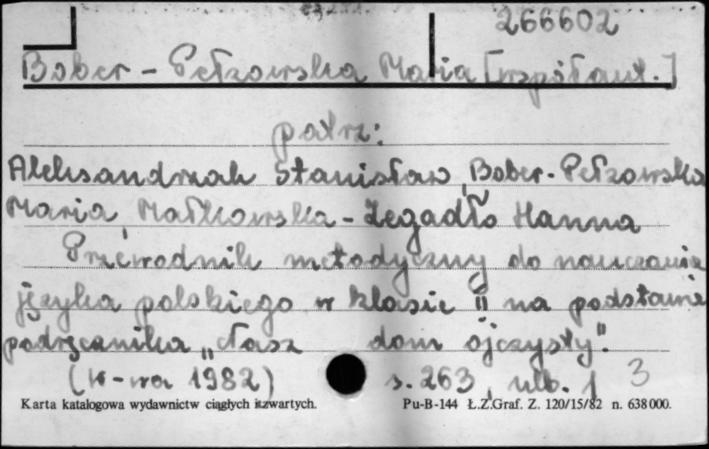 266602
Bober-Pełzowska Maria [współaut.]
patrz:
Aleksandrzak Stanisław, Bober-Pełzowska
Maria, Małkowska-Zegadło Hanna
Przewodnik metodyczny do nauczania
języka polskiego w klasie II na podstawie
podręcznika „Nasz dom ojczysty".
(W-wa 1982) s. 263, nlb. 1 3
Karta katalogowa wydawnictw ciągłych i zwartych. Pu-B-144 Ł.Z.Graf. Z. 120/15/82 n. 638000.